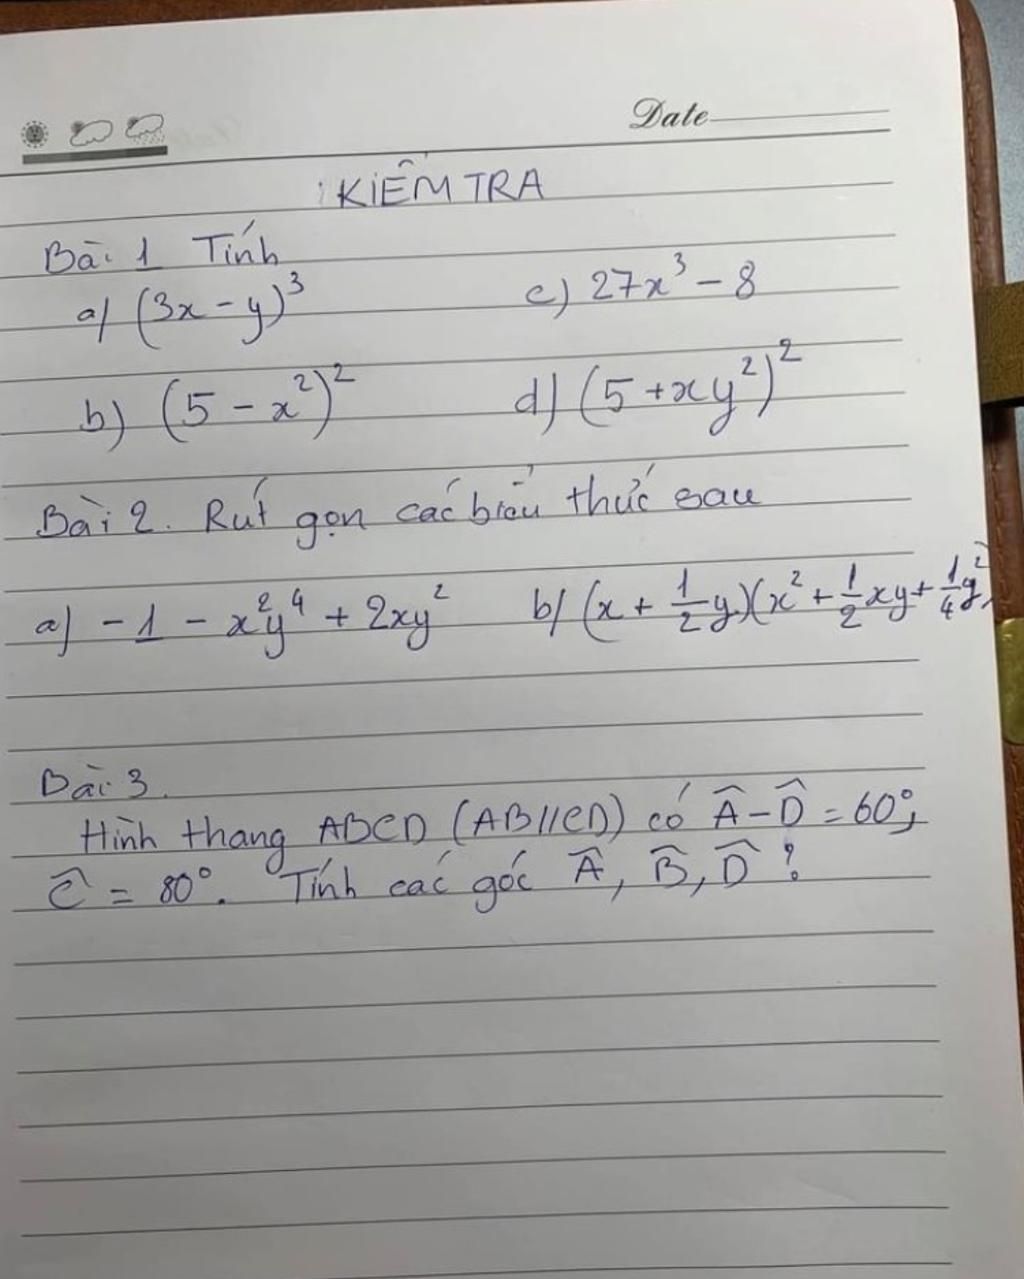 Date
KIỂM TRA
Bài 1 Tính
a) (3x - y)³ c) 27x³ - 8
b) (5 - x²)² d) (5 + xy²)²
Bài 2. Rút gọn các biểu thức sau
a) - 1 - x²y⁴ + 2xy² b) (x + 1/2 y)(x² + 1/2 xy + 1/4 y²)
Bài 3.
Hình thang ABCD (AB//CD) có Â - D̂ = 60°,
Ĉ = 80°. Tính các góc Â, B̂, D̂ ?